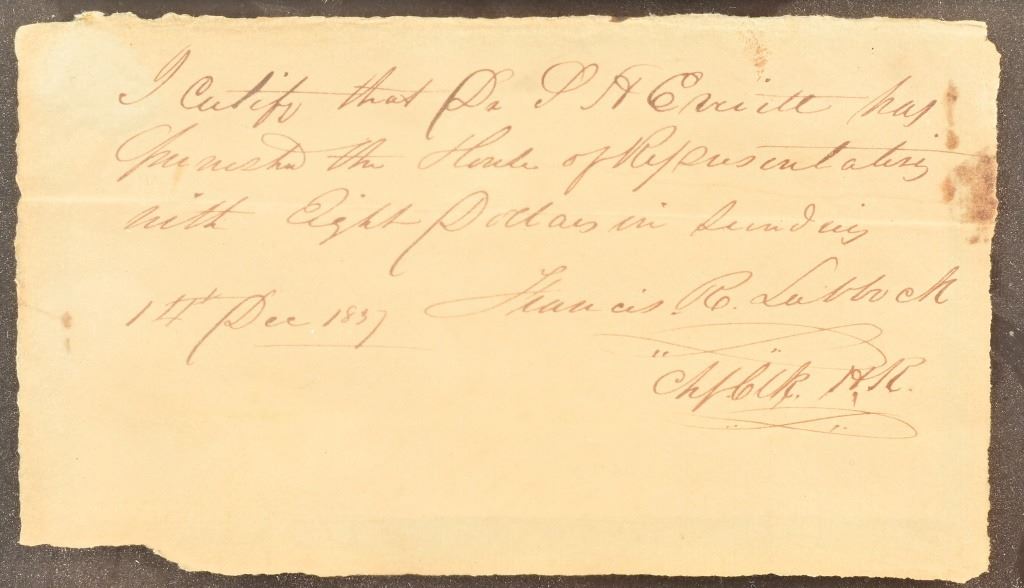 I certify that Dr S H Everitt has
furnished the House of Representatives
with Eight Dollars in Sundries
14th Dec 1837 Francis. R. Lubbock
"Chf Clk. H. R."